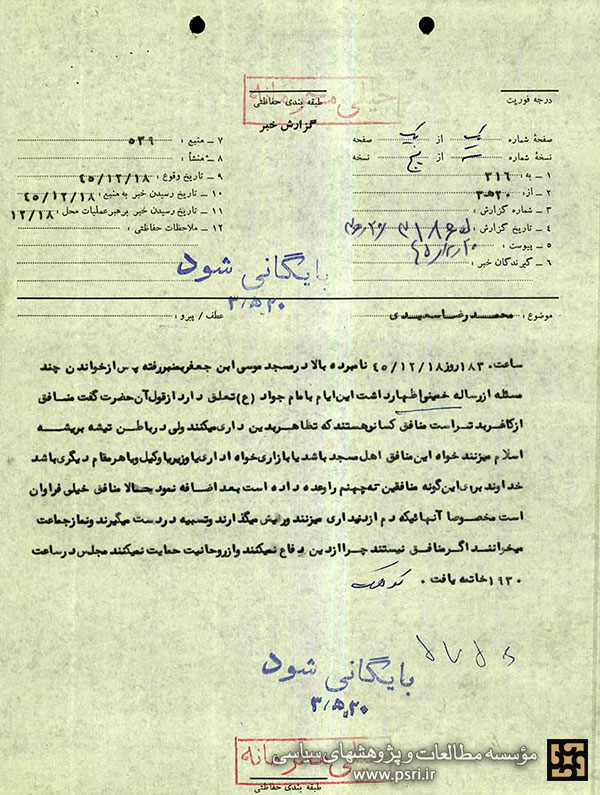 درجه فوریت
خیلی محرمانه
طبقه بندی حفاظتی
گزارش خبر
صفحهٔ شماره یک از یک صفحه
نسخهٔ شماره از پنج نسخه
۱ – به : ۳۱۶
۲ – از : ۲۰ ه‍ ۳
۳ – شماره گزارش :
۴ – تاریخ گزارش :
۵ – پیوست :
۶ – گیرندگان خبر :
۷ – منبع : ۵۳۹
۸ – منشأ :
۹ – تاریخ وقوع : ۴۵/۱۲/۱۸
۱۰ – تاریخ رسیدن خبر به منبع : ۴۵/۱۲/۱۸
۱۱ – تاریخ رسیدن خبر برهبر عملیات محل : ۱۲/۱۸
۱۲ – ملاحظات حفاظتی :
بایگانی شود
۳/۵/۲۰
موضوع : محمدرضا سعیدی
عطف / پیرو :
ساعت ۱۸۳۰ روز ۴۵/۱۲/۱۸ نامبرده بالا در مسجد موسی ابن جعفر بمنبر رفته پس از خواندن چند
مسئله از رساله خمینی اظهار داشت این ایام با مام جواد (ع) تعلق دارد از قول آن حضرت گفت منافق
از کافر بدتر است منافق کسانی هستند که تظاهر بدین داری میکنند ولی در باطن تیشه بریشه
اسلام میزنند خواه این منافق اهل مسجد باشد یا بازاری خواه اداری یا وزیر یا وکیل و یا هر مقام دیگری باشد
خداوند برای این گونه منافقین ته جهنم را وعده داده است بعد اضافه نمود حالا منافق خیلی فراوان
است مخصوصا آنهائیکه دم از دینداری میزنند و ریش میگذارند و تسبیه در دست میگیرند و نماز جماعت
میخوانند اگر منافق نیستند چرا از دین دفاع نمیکنند و از روحانیت حمایت نمیکنند مجلس در ساعت
۱۹۳۰ خاتمه یافت .
بایگانی شود
۳/۵/۲۰
خیلی محرمانه
طبقه بندی حفاظتی
مؤسسه مطالعات و پژوهشهای سیاسی
www.psri.ir